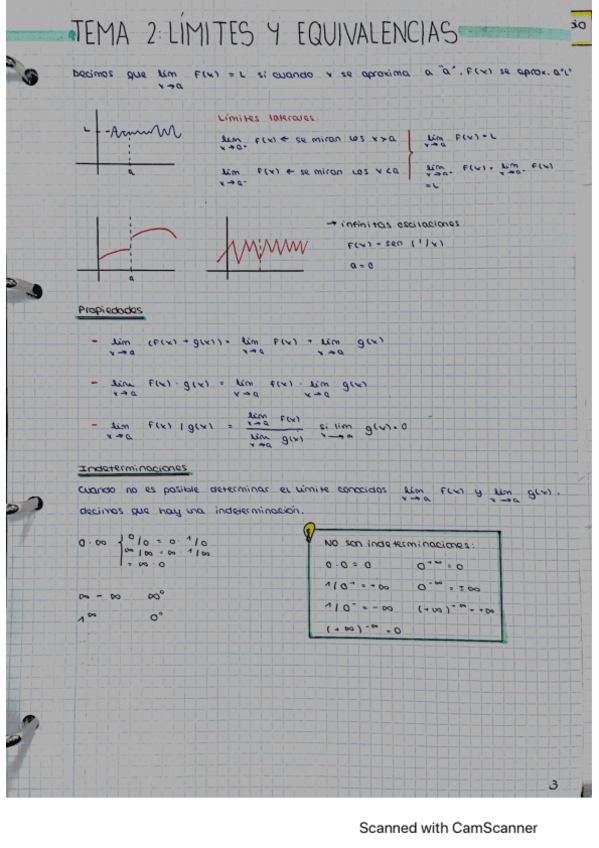 TEMA 2: LÍMITES Y EQUIVALENCIAS
Decimos que lím F(x) = L si cuando x se aproxima a "a", F(x) se aprox. a "L"
x→a
Límites laterales
L
a
lím F(x) ← se miran los x>a
x→a⁺
lím F(x) = L
x→a
lím F(x) ← se miran los x<a
x→a⁻
lím F(x) = lím F(x)
= L
a
→ infinitas oscilaciones
F(x) = sen (1/x)
a = 0
Propiedades
- lím (F(x) + g(x)) = lím F(x) + lím g(x)
x→a x→a x→a
- lím F(x) · g(x) = lím F(x) · lím g(x)
x→a x→a x→a
- lím F(x) / g(x) = lím F(x) / lím g(x) si lím g(x)
x→a x→a x→a x→a
Indeterminaciones
Cuando no es posible determinar el límite conocidos lím F(x) y lím g(x),
x→a x→a
decimos que hay una indeterminación.
0 · ∞
0/0 = 0 · 1/0
∞/∞ = ∞ · 1/∞
= ∞ · 0
∞ - ∞ ∞⁰
1^∞ 0⁰
NO son indeterminaciones:
0 · 0 = 0 0^+∞ = 0
1/0⁺ = +∞ 0^-∞ = ±∞
1/0⁻ = -∞
(+∞)^-∞ = 0
3
Scanned with CamScanner